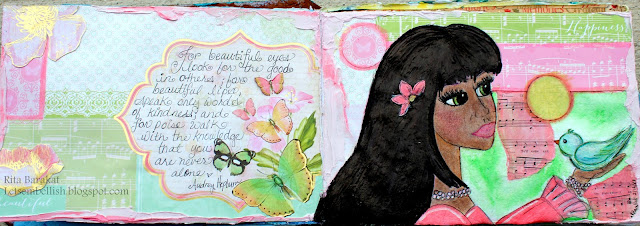 For beautiful eyes
look for the good
in others; for
beautiful lips,
speak only words
of kindness; and
for poise walk
with the knowledge
that you
are never
alone.
Audrey Hepburn
Rita Barakat
Happiness